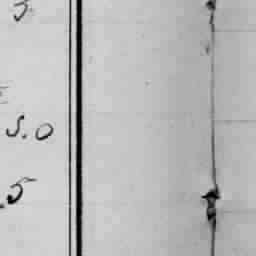 3
5.0
.5